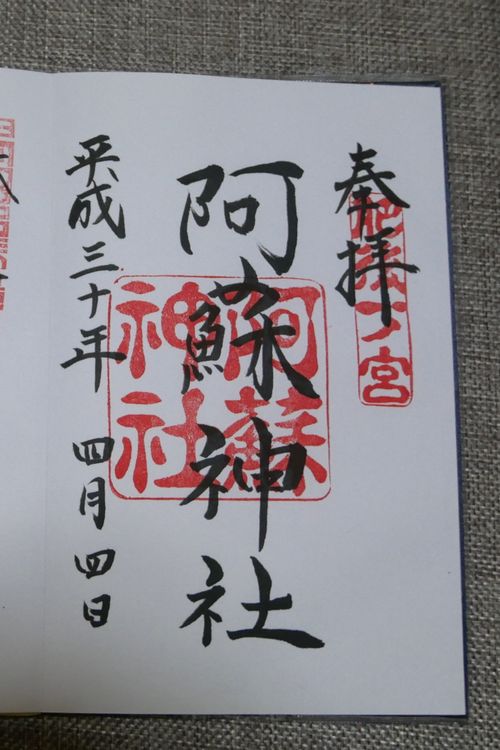 奉拝
肥後一宮
阿蘇神社
阿蘇神社
平成三十年 四月四日